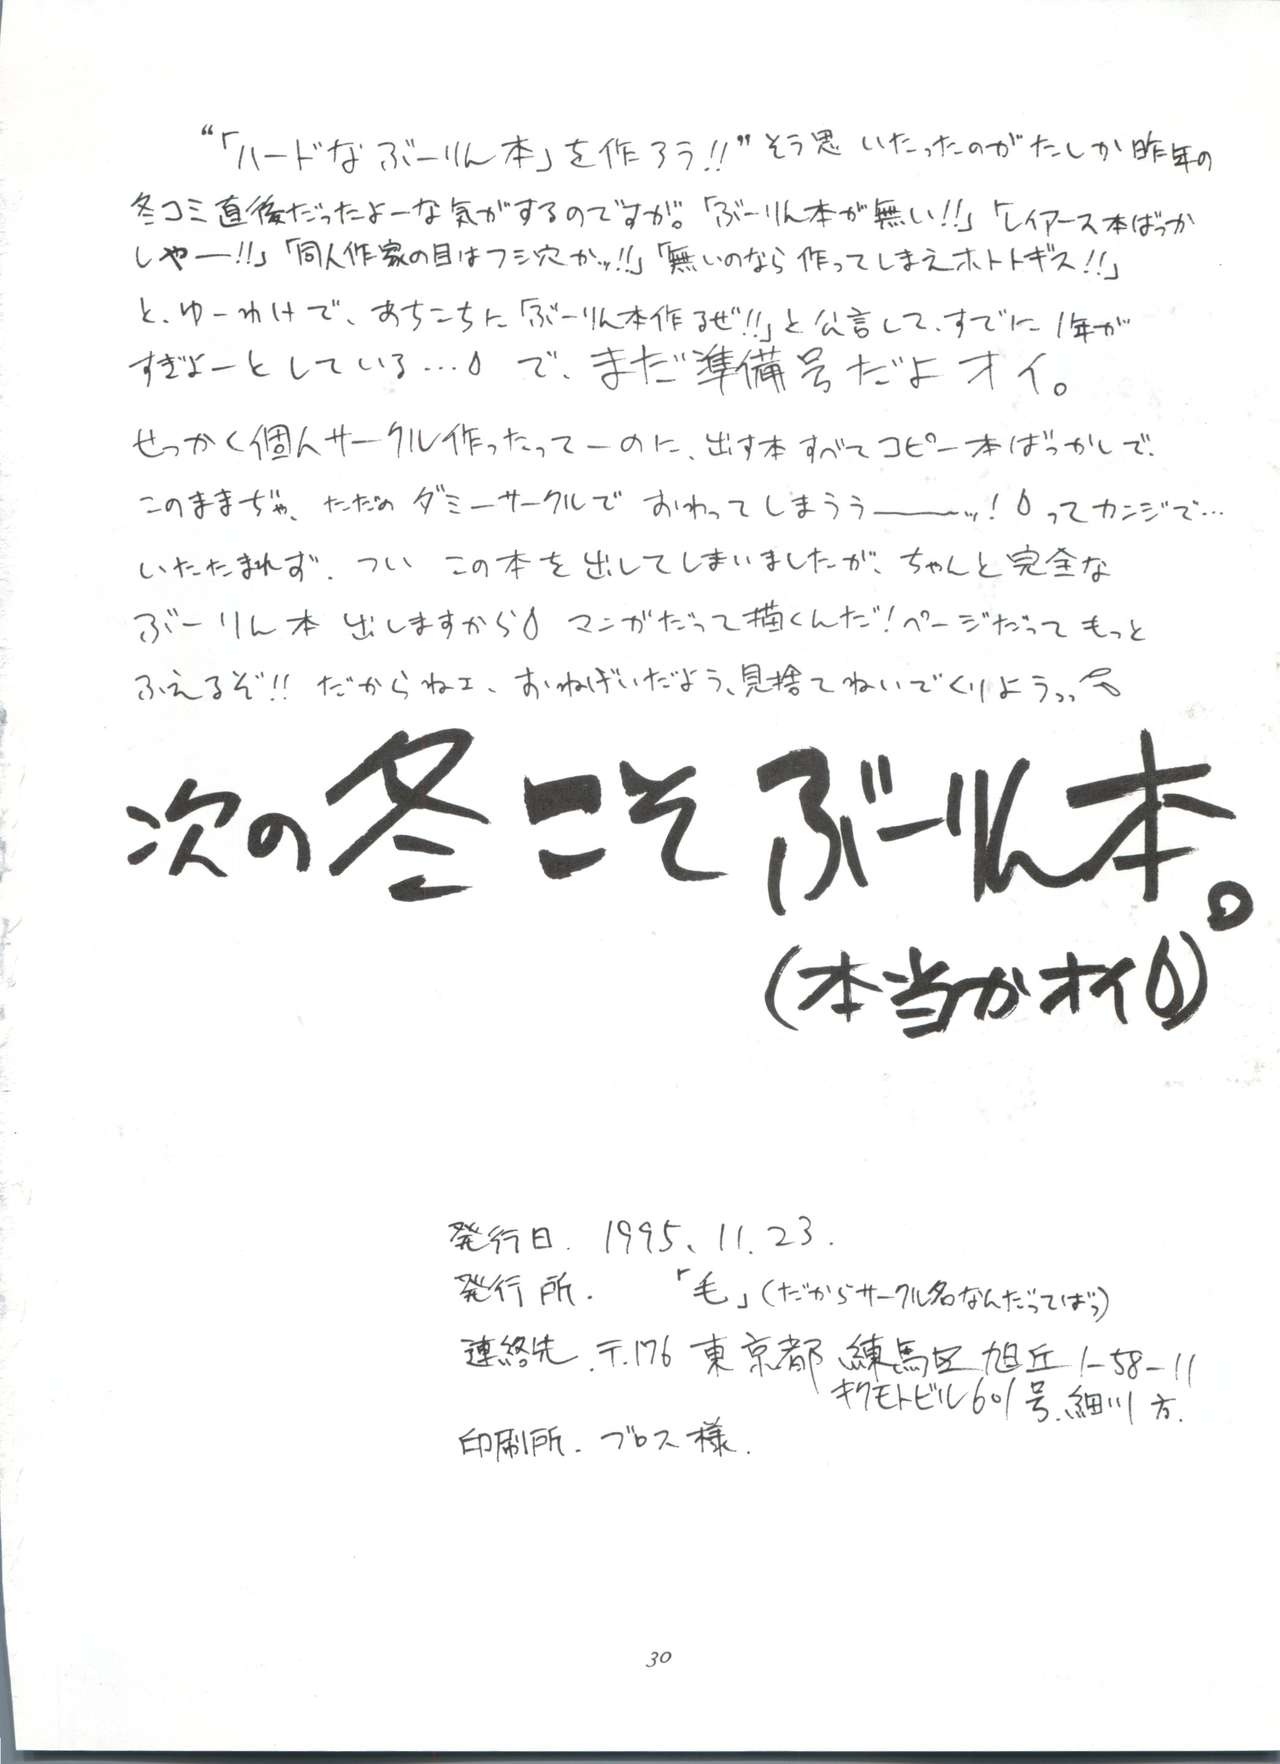 “「ハードなぶーりん本」を作ろう!!”そう思いたったのがたしか昨年の
冬コミ直後だったよーな気がするのですが。「ぶーりん本が無い!!」「レイアース本ばっか
しやー!!」「同人作家の目はフシ穴かッ!!」「無いのなら作ってしまえホトトギス!!」
と、ゆーわけで、あちこちに「ぶーりん本作るぜ!!」と公言して、すでに1年が
すぎよーとしている…で、まだ準備号だよオイ。
せっかく個人サークル作ったってーのに、出す本すべてコピー本ばっかしで、
このままぢゃ、ただのダミーサークルでおわってしまうぅ――ッ!ってカンジで…
いたたまれず、ついこの本を出してしまいましたが、ちゃんと完全な
ぶーりん本出しますから マンガだって描くんだ!ページだってもっと
ふえるぞ!!だからねェ、おねげいだよう、見捨てねいでくりようっっ
次の冬こそぶーりん本。
(本当かオイ)
発行日. 1995、11.23.
発行所. 「毛」(だからサークル名なんだってばっ)
連絡先.〒.176 東京都 練馬区旭丘1-58-11
キクモトビル601号.細川方.
印刷所. ブロス様.
30